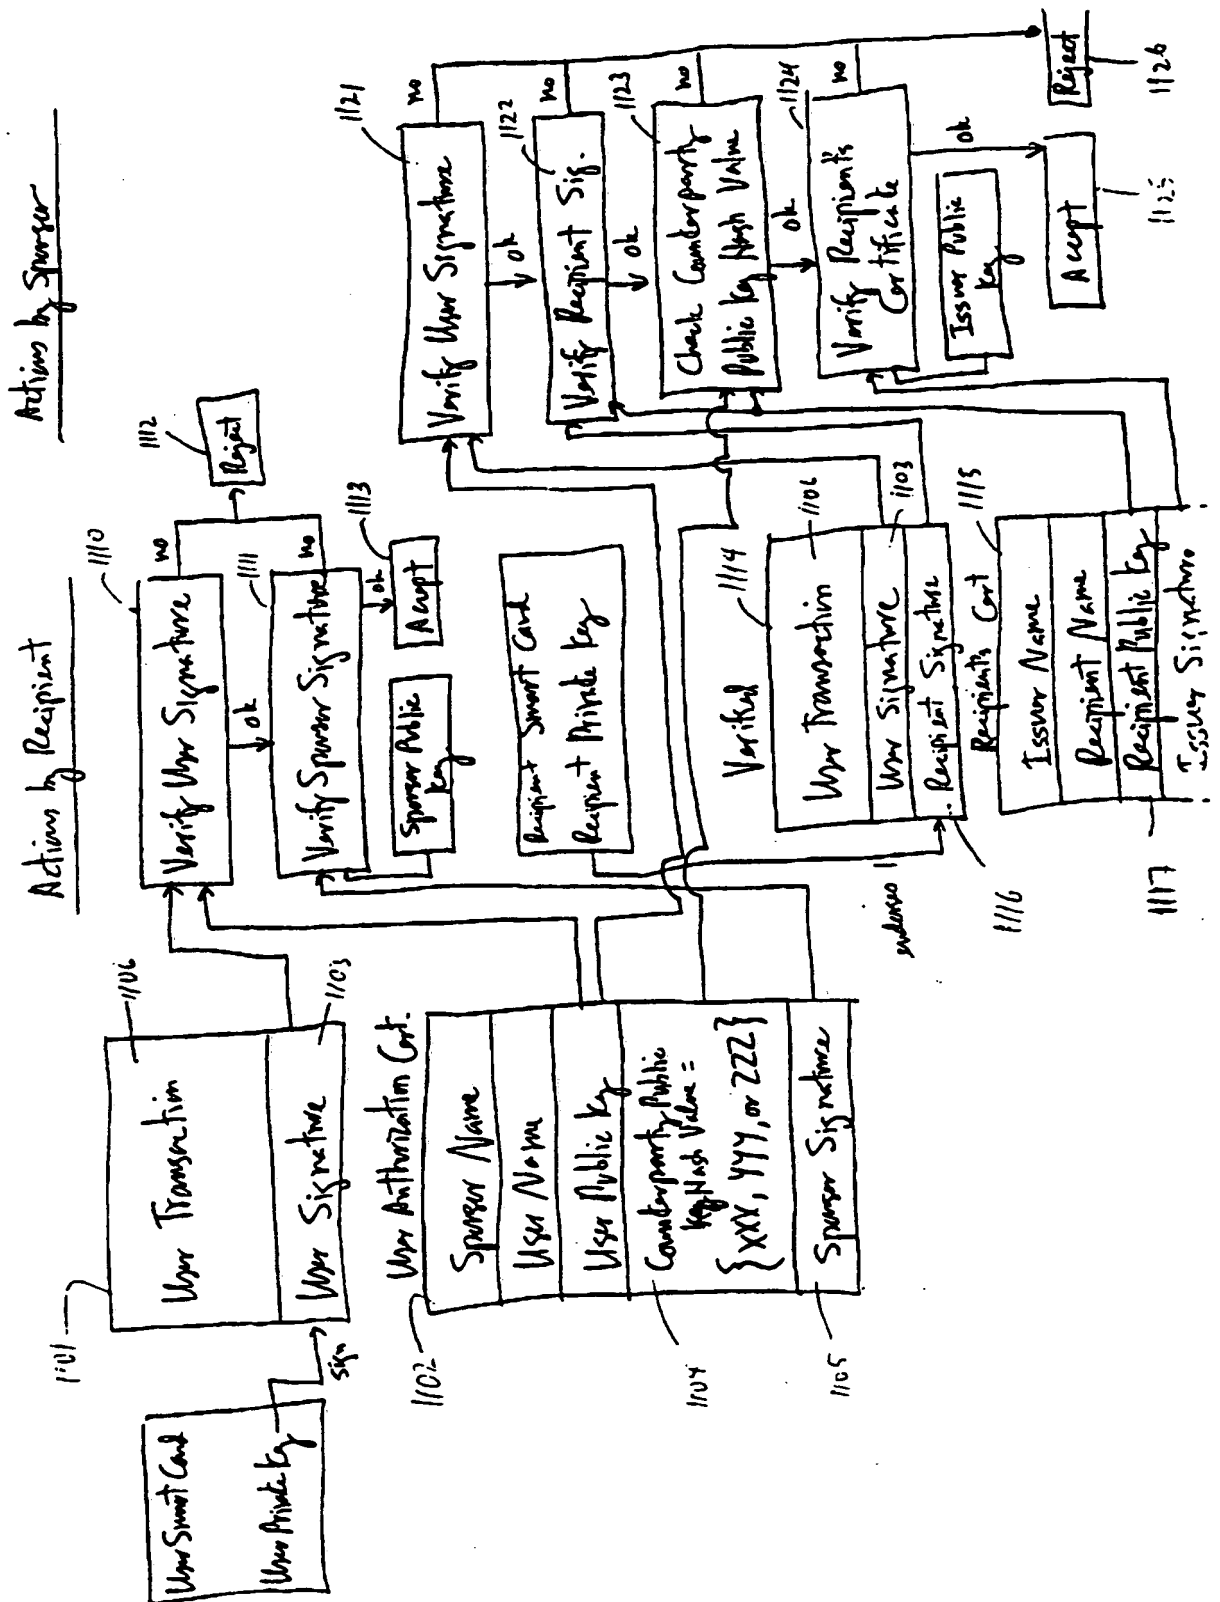 Actions by Recipient
Actions by Sponsor
User Smart Card
User Private Key
sign
1101
User Transaction
1106
User Signature
1103
1102
User Authorization Cert.
Sponsor Name
User Name
User Public Key
Counterparty Public
Key Hash Value =
{XXX, YYY, or ZZZ}
Sponsor Signature
1104
1105
1110
Verify User Signature
no
ok
1111
Verify Sponsor Signature
no
ok
1112
Reject
1113
Accept
Sponsor Public
Key
Recipient Smart Card
Recipient Private Key
Verified
1114
User Transaction
1106
User Signature
1103
Recipient Signature
1116
Recipients Cert
1115
Issuer Name
Recipient Name
Recipient Public Key
Issuer Signature
1117
1121
Verify User Signature
no
ok
1122
Verify Recipient Sig.
no
ok
1123
Check Counterparty
Public Key Hash Value
no
ok
1124
Verify Recipient's
Certificate
no
ok
Issuer Public
Key
Accept
1125
Reject
1126